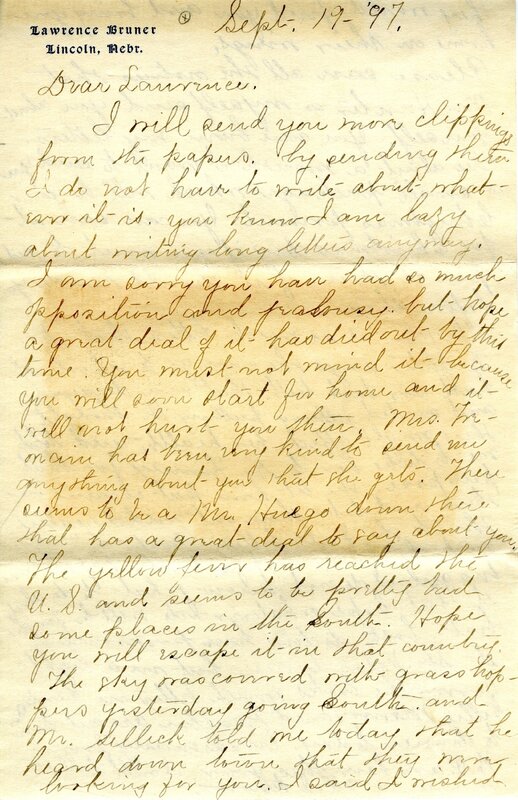 Lawrence Bruner
Lincoln, Nebr.
Sept. 19-'97.
Dear Lawrence.
I will send you more clippings
from the papers. by sending them
I do not have to write about what-
ever it is. you know I am lazy
about writing long letters anyway.
I am sorry you have had so much
opposition and jealousy. but hope
a great deal of it has died out by this
time. You must not mind it because
you will soon start for home and it
will not hurt you then. Mrs. Fe-
has been very kind to send me
anything about you that she gets. There
seems to be a Mr. Huego down there
that has a great deal to say about you.
The yellow fever has reached the
U. S. and seems to be pretty bad
some places in the South. Hope
you will escape it in that country.
The sky was covered with grasshop-
pers yesterday going South and
Mr. Selleck told me today that he
heard down town that they were
looking for you. I said I wished